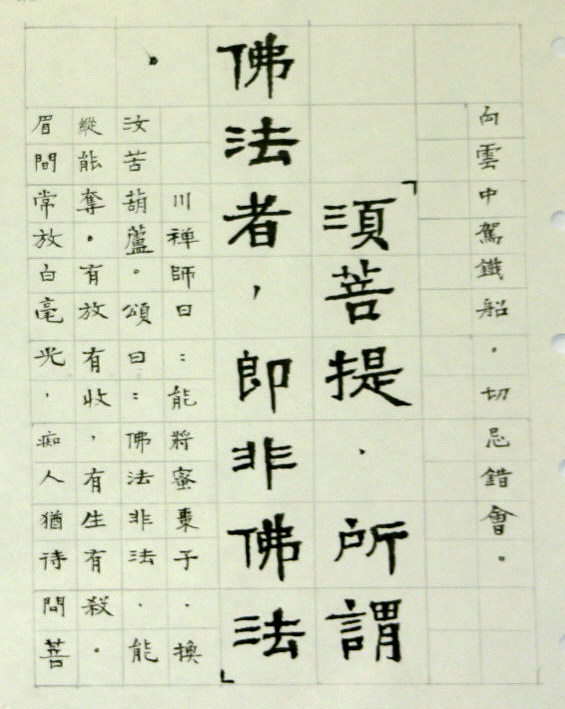 向雲中駕鐵船．切忌錯會。
「須菩提．所謂
佛法者，即非佛法」
川禪師曰：能將蜜棗子．換
汝苦葫蘆。頌曰：佛法非法．能
縱能奪．有放有收，有生有殺．
眉間常放白毫光，痴人猶待問菩